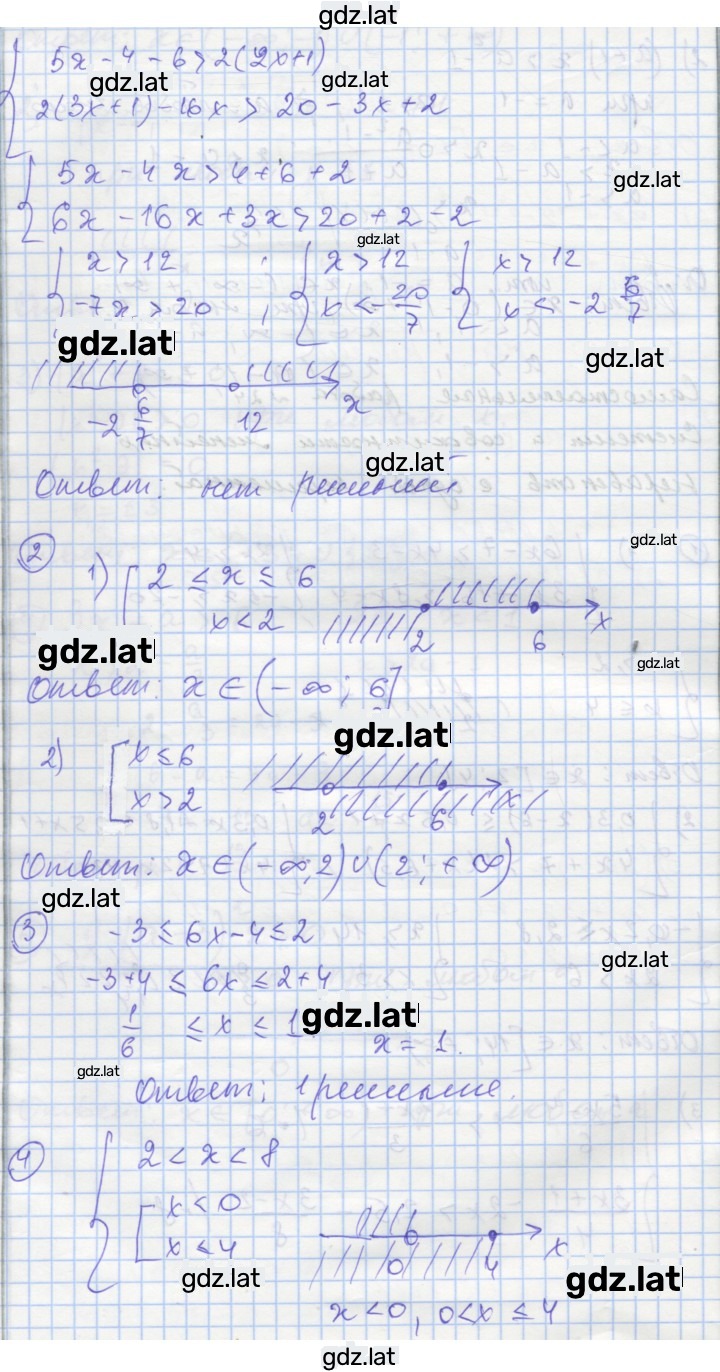 gdz.lat
5x - 4 - 6 > 2(2x+1)
gdz.lat gdz.lat
2(3x+1) - 16x > 20 - 3x + 2
5x - 4x > 4 + 6 + 2
gdz.lat
6x - 16x + 3x > 20 + 2 - 2
gdz.lat
x > 12 ; x > 12 x > 12
-7x > 20 ; x < -20/7 x < -2 6/7
gdz.lat gdz.lat
-2 6/7 12 x
gdz.lat
Ответ: нет решений
gdz.lat
2 1) 2 ≤ x ≤ 6
x < 2 2 6 x
gdz.lat gdz.lat
Ответ: x ∈ (-∞; 6]
gdz.lat
2) x ≤ 6
x > 2 2 6 x
Ответ: x ∈ (-∞; 2) ∪ (2; +∞)
gdz.lat
3 -3 ≤ 6x - 4 ≤ 2
gdz.lat
-3+4 ≤ 6x ≤ 2+4
1/6 ≤ x ≤ 1 gdz.lat
x = 1.
gdz.lat
Ответ: 1 решение.
4 2 < x < 8
x < 0
x ≤ 4 0 4 x
gdz.lat gdz.lat
x < 0, 0 < x ≤ 4
gdz.lat